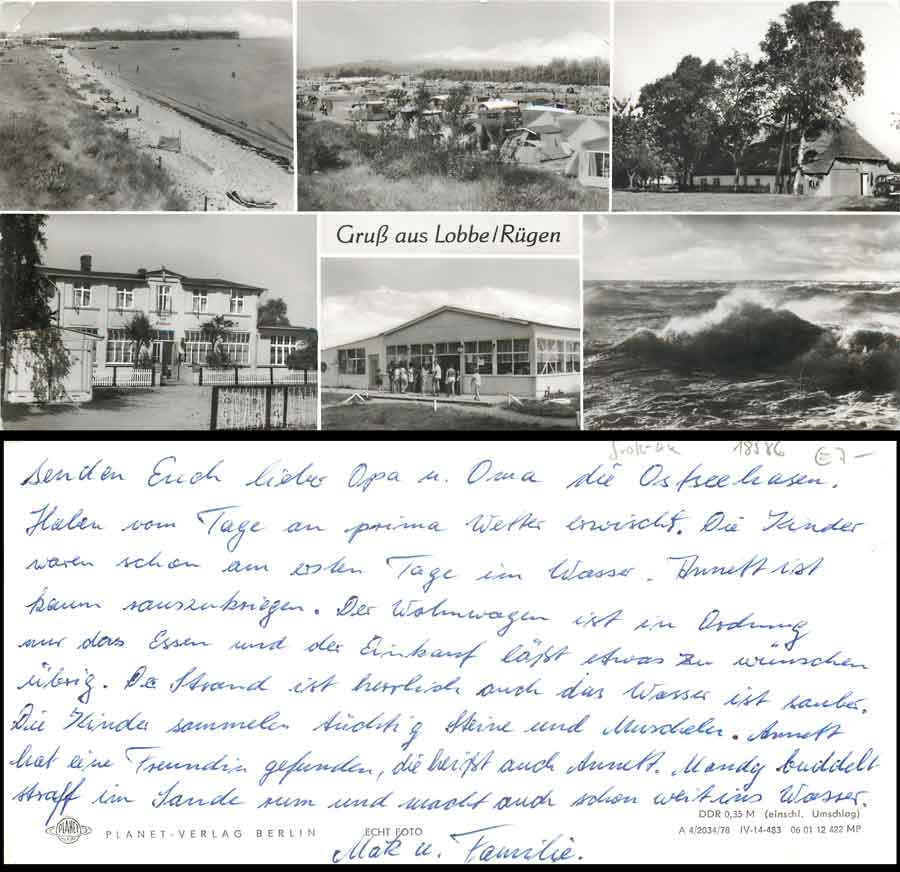 Gruß aus Lobbe/Rügen
18586 E 7.-
senden Euch lieber Opa u. Oma die Ostseehasen.
Haben vom Tage an prima Wetter erwischt. Die Kinder
waren schon am ersten Tage im Wasser. Annett ist
kaum rauszukriegen. Der Wohnwagen ist in Ordnung
nur das Essen und der Einkauf läßt etwas zu wünschen
übrig. Der Strand ist herrlich auch das Wasser ist sauber.
Die Kinder sammeln tüchtig Steine und Muscheln. Annett
hat eine Freundin gefunden, die heißt auch Annett. Mandy buddelt
straff im Sande rum und macht auch schon weit ins Wasser.
DDR 0,35 M (einschl. Umschlag)
PLANET
PLANET-VERLAG BERLIN ECHT FOTO A 4/2034/78 IV-14-483 06 01 12 422 MP
u. Familie.